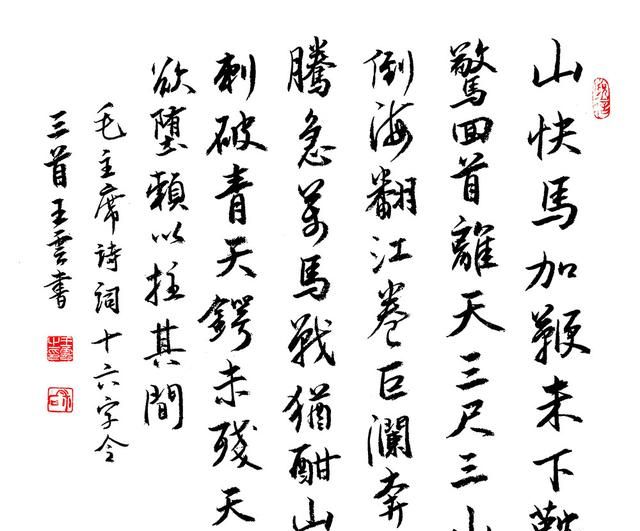 山快馬加鞭未下鞍
驚回首離天三尺三山
倒海翻江卷巨瀾奔
騰急萬馬戰猶酣山
刺破青天鍔未殘天
欲墮賴以拄其間
毛主席詩詞十六字令
三首王雲書